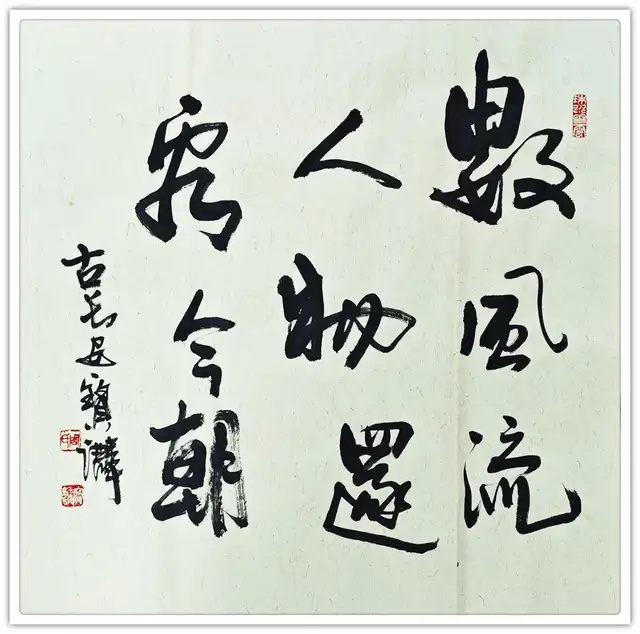 數風流
人物還
看今朝
古长安寶